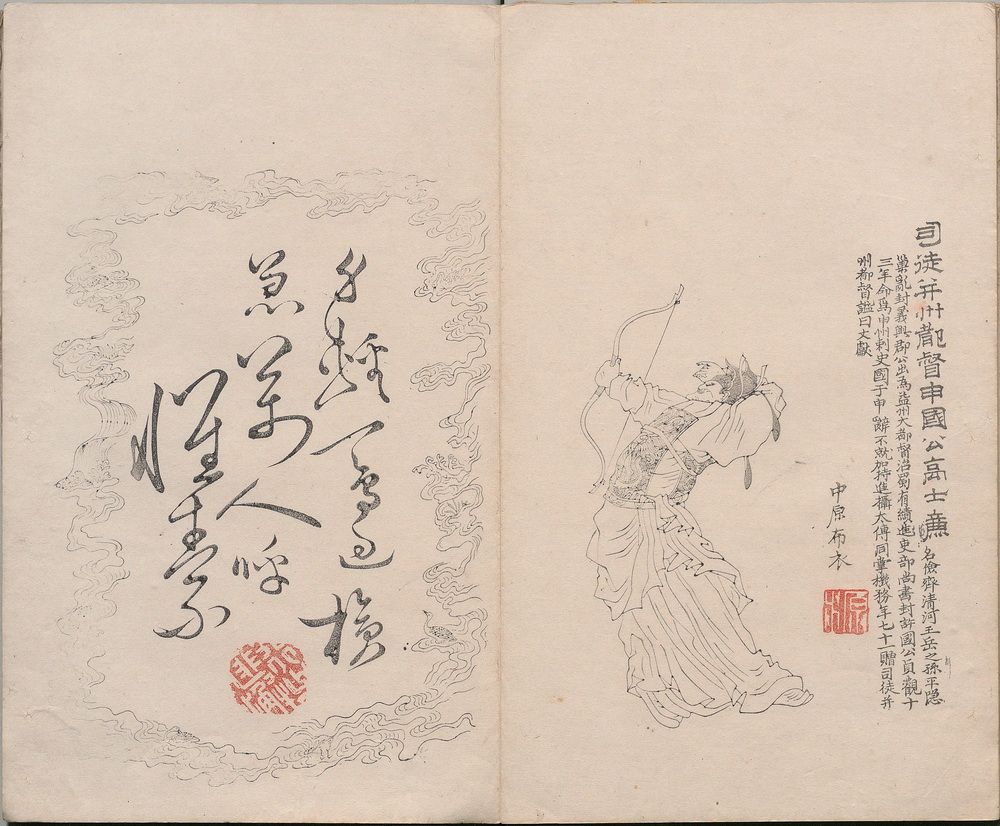 司徒并州都督申國公高士廉
名儉齊清河王岳之孫平隱
巢亂封義興郡公出為益州大都督治蜀有績進吏部尚書封許國公貞觀十
三年命為申州刺史國于申辭不就加特進攝太傅同掌機務年七十一贈司徒并
州都督謚曰文獻
中原布衣
身輕一鳥過槍
急萬人呼